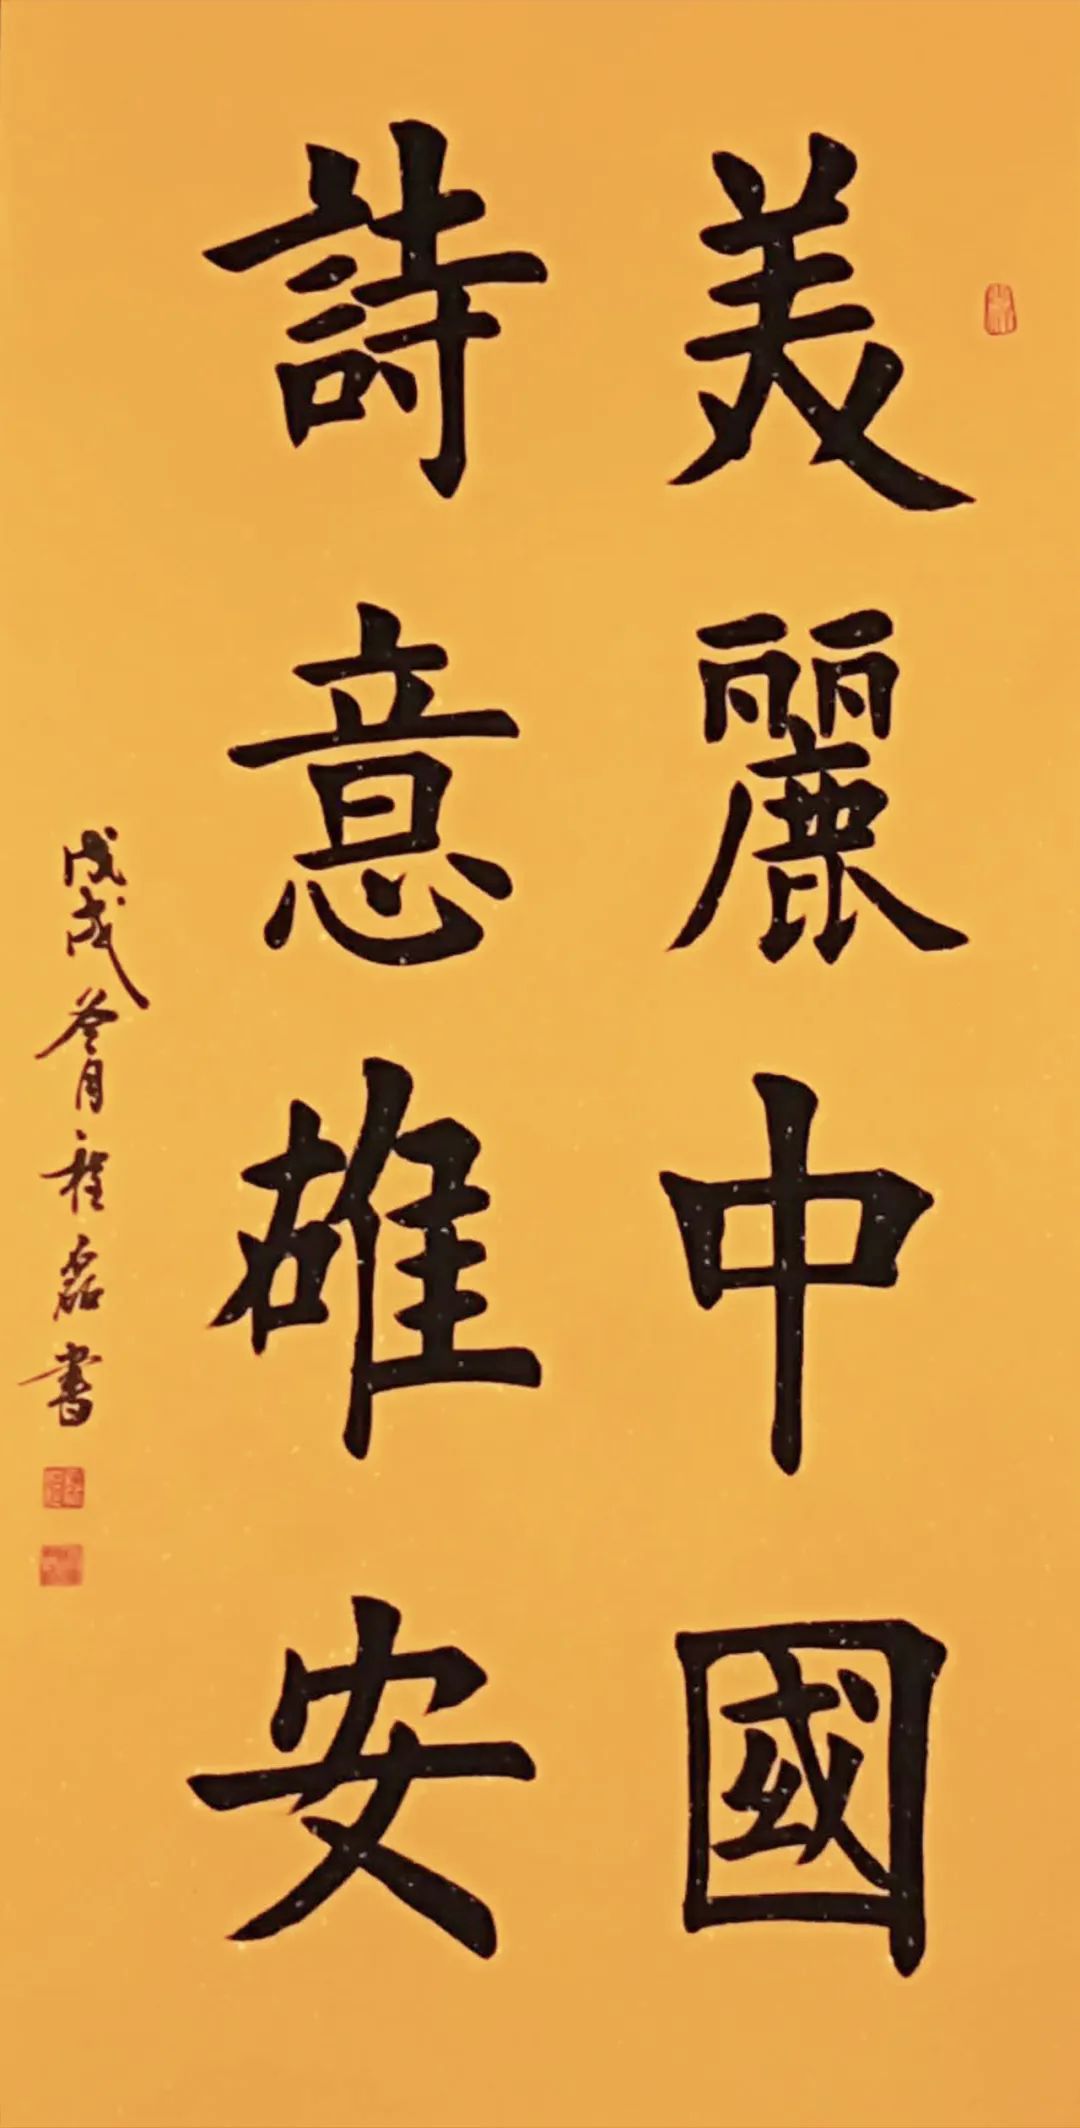 美麗中國
詩意雄安
戊戌冬月程磊書